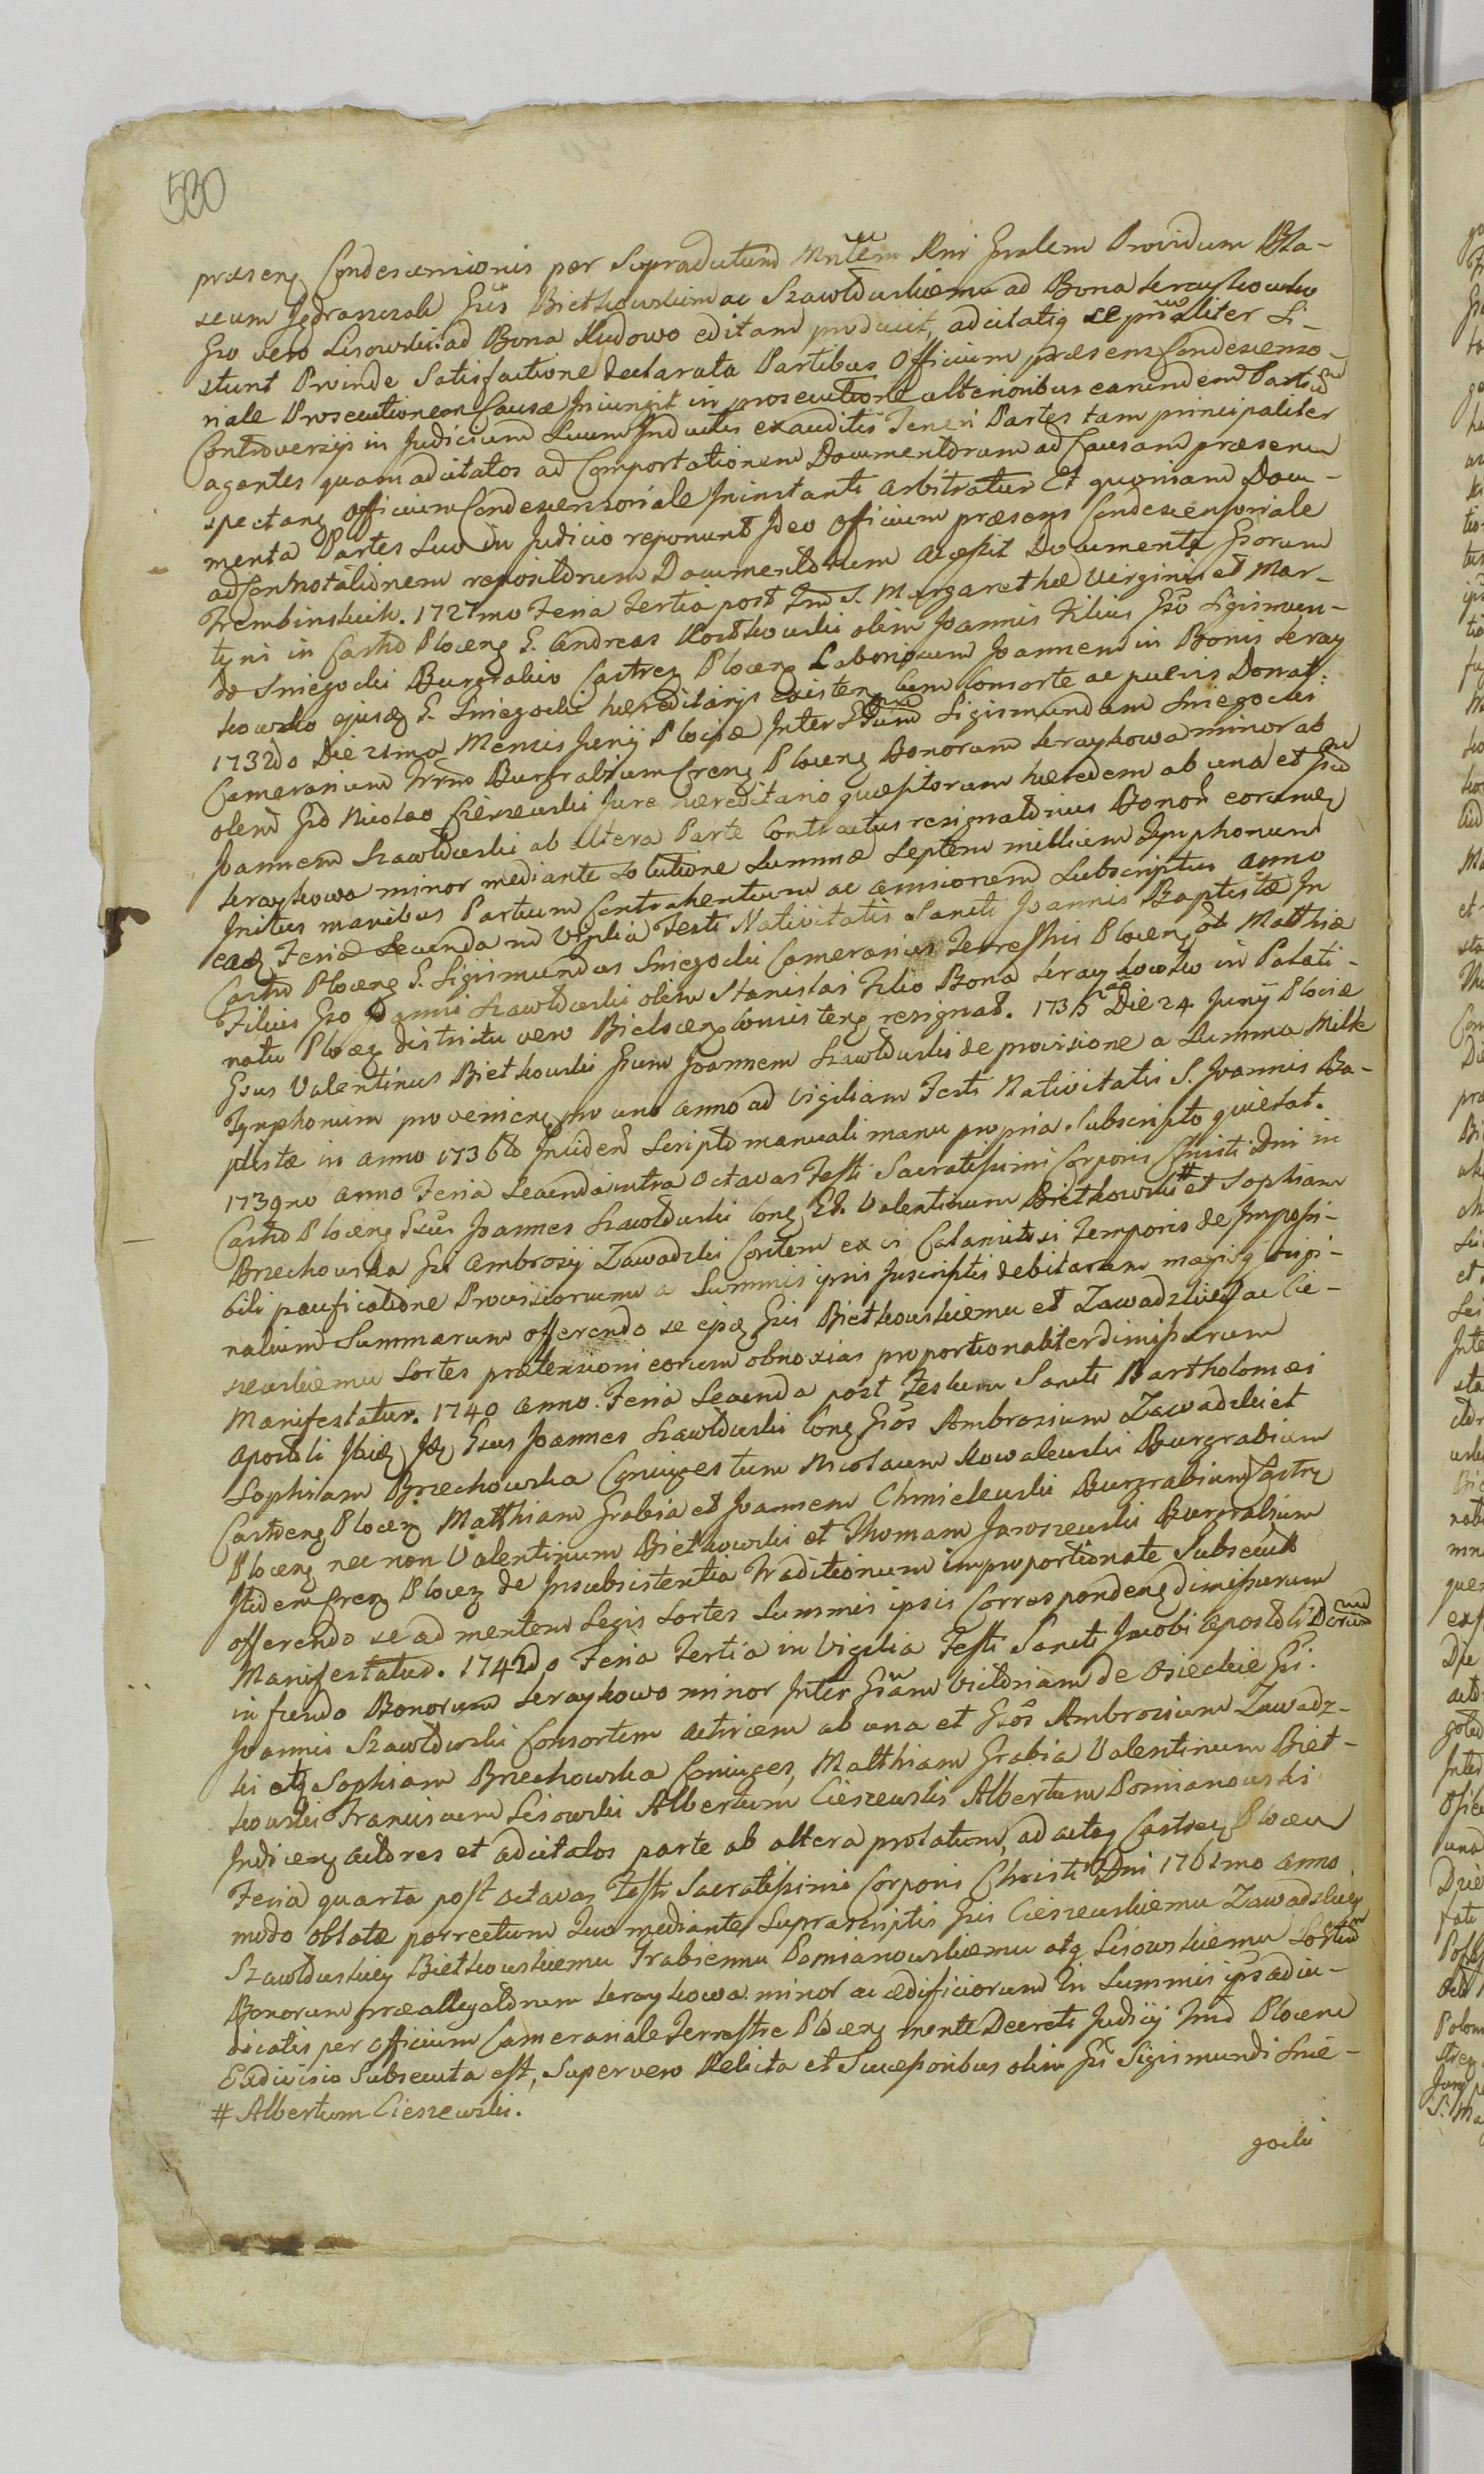 530
præsenq Condescensionis per Supradictum Mnltem Rni Gnalem Providum Bla-
seum Jędraszczak Gsis Bietkowskiemu ac Szawłowskiemu ad Bona Seraykowko
Gso vero Lisowski ad Bona Rudowo editam producit, adcitatiq se prnliter Si-
stunt Proinde Satisfactione declarata Partibus Officium præsens Condescenso-
riale Prosecutionem Causæ Iniungit in prosecutione ulterioribus earundem Partiu
Controversijs in Judicium Suum Inductis exauditis Teneri Partes tam principaliter
agentes quam adcitatos ad Comportationem Documentorum ad Causam præsenem
spectanq Officium Condescensoriale Ininstanti arbitratur Et quoniam Docu-
menta Partes Suo in Judicio reponunt Ideo Officium præsens Condescensoriale
ad Conñotationem repositorum Documentorum accessit Documenta Gsorum
Trembinskich. 1727mo Feria Tertia post Fm S. Margarethæ Virginis et Mar-
tyris in Castro Plocenq G. Andreas Kostkowski olim Joannis Filius Gso Sigismun-
do Sniegocki Burgrabio Castrenq Plocenq Laboriosum Joannem in Bonis Seray
kowko ejusq G. Sniegocki hæreditarijs existenq Cum Consorte ac pueris Donat.
1732do Die 21ma Mensis Junij Plociæ Inter Gsum Sigismundum Sniegocki
Camerarium Trrm Burgrabium Crenq Plocenq Bonorum Seraykowa minor ab
olim Gso Nicolao Cieszewski Jure hæreditario quæsitorum hæredem ab una et Gsu
Joannem Szawłowski ab altera Parte Contractus resignatorius Bonorum eorumq
Seraykowa minor mediante solutione Summæ Septem millium Tymphonum
Initus manibus Partium Contrahentium ac amicorum Subscriptus anno
eoq Feria Secunda in Viglia Festi Nativitatis Sancti Joannis Baptistæ In
Castro Plocenq G. Sigismundus Sniegocki Camerarius Terrestris Plocen. ol. Matthiæ
Filius Gso Joanni Szawłowski olim Stanislai Filio Bona Seraykowko in Palati-
natu Plocq districtu vero Bielscenq Consistenq resignat. 1735to Die 24 Junij Plociæ
Gsus Valentinus Bietkowski Gsum Joannem Szawłowski de provisione a Summa Mille
Tymphonum provenienq pro uno anno ad Vigiliam Festi Nativitatis S. Joannis Ba-
ptistæ in anno 1736to Inciden Scripto manuali manu propria Subscripto quietat.
1739no anno Feria Secunda intra Octavas Festi Sacratissimi Corporis Christi Dni in
Castro Plocenq Gsus Joannes Szawłowski Conq GG. Valentinum Bietkowski # et Sophiam
Brzechowska Gsi Ambrosij Zawadzki Contem ex vi Calamitosi Temporis de Impossi-
bili pacificatione Provisiorum a Summis ipsis Inscriptis debitarum magisq origi-
nalium Summarum offerendo se ejsq Gsis Bietkowskiemu et Zawadzkiey ac Cie-
szewskiemu Sortes prætensioni eorum obnoxias proportionaliter dimissurum
Manifestatur. 1740 anno. Feria Secunda post Festum Sancti Bartholomæi
Apostoli Ibidq Idq Gsus Joannes Szawłowski Conq Gsos Ambrosium Zawadzki et
Sophiam Brzechowska Coniuges tum Nicolaum Kowalewski Burgrabium
Castrenq Plocenq Matthiam Grabia et Joannem Chmielewski Burgrabium Castrq
Plocenq nec non Valentinum Bietkowski et Thomam Jaroszewski Burgrabium
Itidem Crenq Plocenq de Insubsistentia Traditionum improportionate Subsecuta
offerendo se ad mentem Legis Sortes Summis ipsis Correspondenq dimissurum
Manifestatur. 1742do Feria Tertia in Vigilia Festi Sancti Jacobi Apostoli Dcrum
in fundo Bonorum Seraykowo minor Inter Gsam Victoriam de Osieckie Gsi.
Joannis Szawłowski Consortem actricem ab una et Gsos Ambrosium Zawadz-
ki atq Sophiam Brzechowska Coniuges, Matthiam Grabia Valentinum Biet-
kowski Franciscum Lisowski Albertum Cieszewski Albertum Pomianowski
Indicenq actores et adcitatos parte ab altera prolatum, ad actaq Castren Plocen
Feria quarta post octavas Festi Sacratissimi Corporis Christi Dni 1761mo anno
modo oblatæ porrectum Quo mediante Suprascriptis Gsis Cieszewskiemu Zawadzkiey
Szawłowskiey Bietkowskiemu Grabiemu Pomianowskiemu atq Lisowskiemu Sortiu
Bonorum præallegatorum Seraykowa minor ac ædificiorum In Summis ipsis adiu-
dicatis per Officium Camerariale Terrestre Plocenq mente Decreti Judicij Trnd Plocen
Exdivisio Subsecuta est, Super vero Relicta et Successoribus olim Gsi Sigismundi Snie-
# Albertum Cieszewski.
gocki